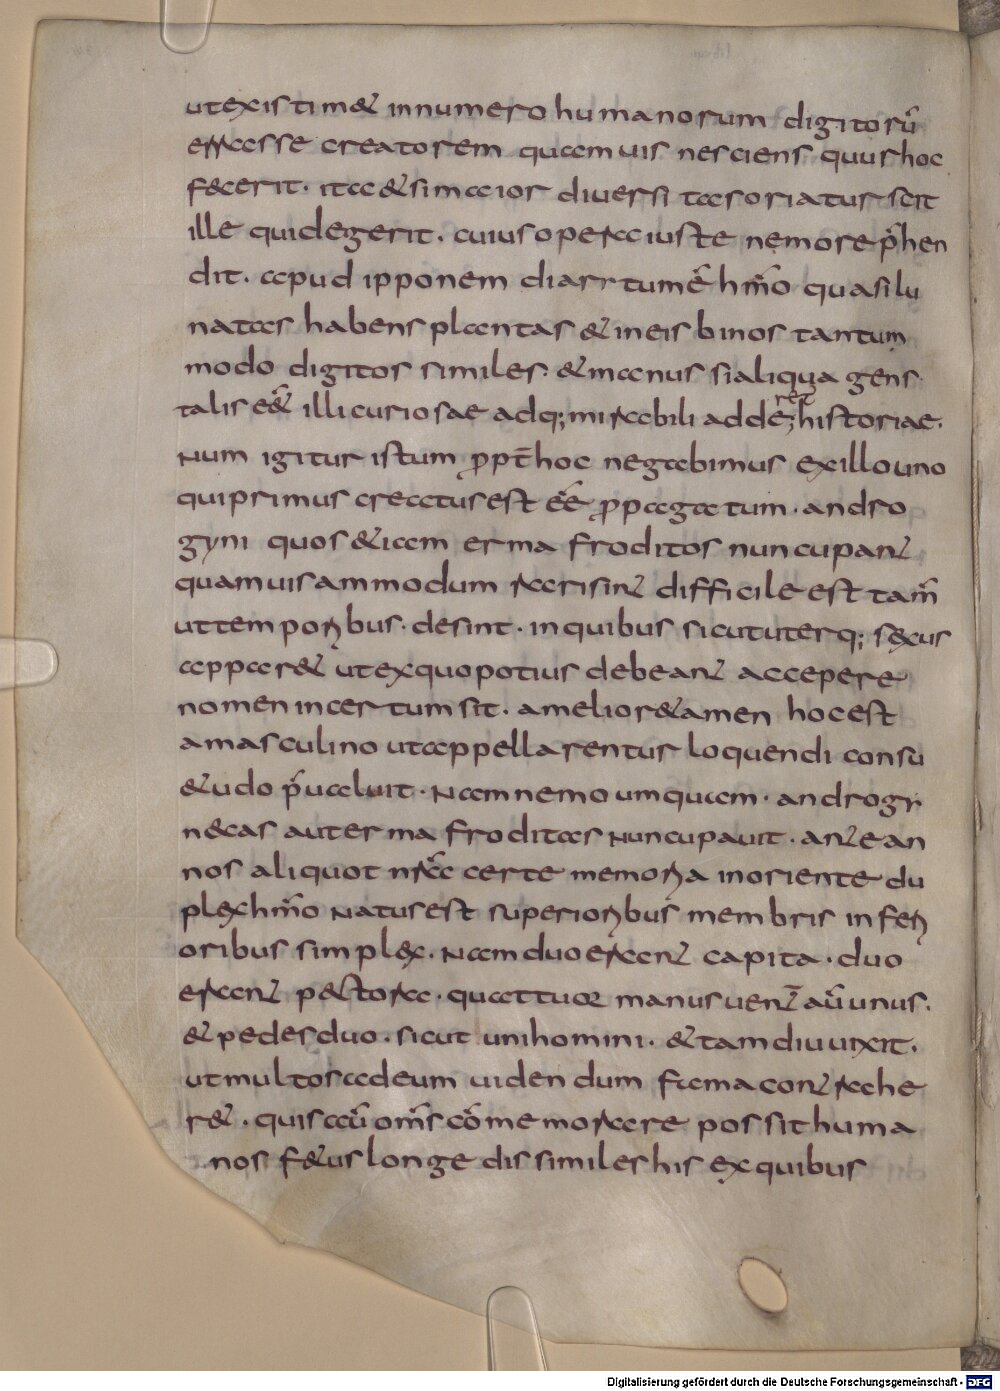 utexistim& innumero humanorum digitorū
errasse creatorem quamuis nesciens quur hoc
fecerit. ita & si maior diuersitas oriatur scit
ille quid egerit. cuius opera iuste nemo rep̄hen
dit. apud ipponem diarrtum ē hm̄o quasi lu
natas habens plantas & in eis binos tantum
modo digitos similes & manus si aliqua gens
talis e&̄ illi curiosae adq; mirabili adder&; historiae.
Num igitur istum ꝓpt̄ hoc negabimus ex illo uno
qui primus creatus est eē ꝓpagatum. andro
gyni quos &iam ermafroditos nuncupant
quamuis ammodum rari sint difficile est tam̄
ut temporibus desint. in quibus sic ut uterq; sexus
appar& ut ex quo potius debeant accepere
nomen incertum sit. a melior& amen hoc est
a masculino ut appellarentur loquendi consu
&udo p̄ualuit. Nam nemo umquam. androgi
necas aut ermafroditas nuncupauit. ante an
nos aliquot nr̄a certe memoria in oriente du
plex hm̄o natus est superioribus membris inferi
oribus simplex. Nam duo erant capita. duo
erant pectora. quattuor manus uent̄ aū unus.
& pedes duo. sicut uni homini. & tam diu uixit.
ut multos ad eum uidendum fama contrahe
r&. quis aū om̄s cōmemorare possit huma
nos f&us longe dissimiles his ex quibus
Digitalisierung gefördert durch die Deutsche Forschungsgemeinschaft - DFG